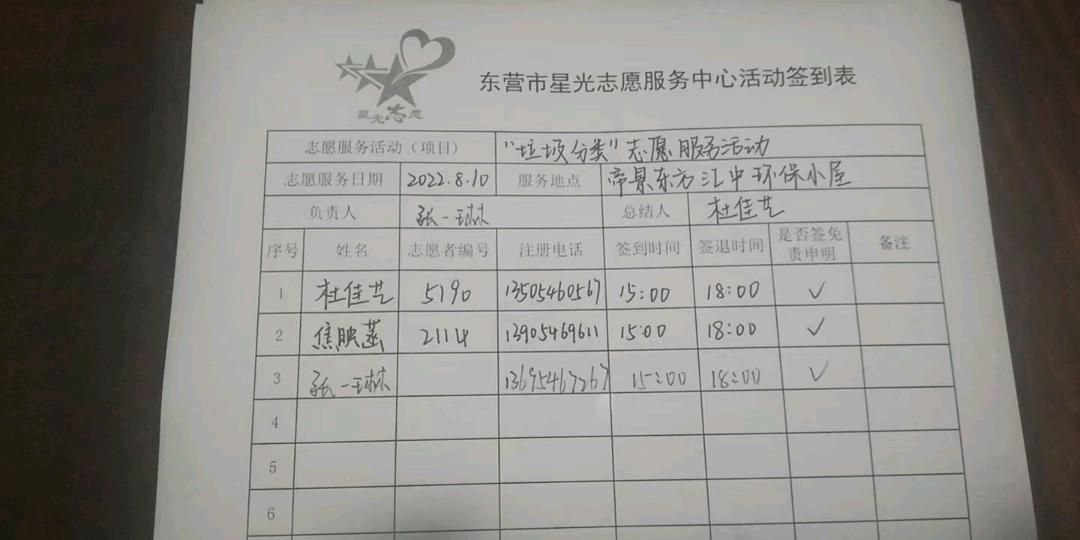 星光志愿
东营市星光志愿服务中心活动签到表
志愿服务活动（项目） "垃圾分类"志愿服务活动
志愿服务日期 2022.8.10 服务地点 帝景东方汇中环保小屋
负责人 张一琳 总结人 杜佳艺
序号 姓名 志愿者编号 注册电话 签到时间 签退时间 是否签免责申明 备注
1 杜佳艺 5190 13505460567 15:00 18:00 ✓
2 焦映菡 2114 13905469611 15:00 18:00 ✓
3 张一琳 13695467267 15:00 18:00 ✓
4
5
6